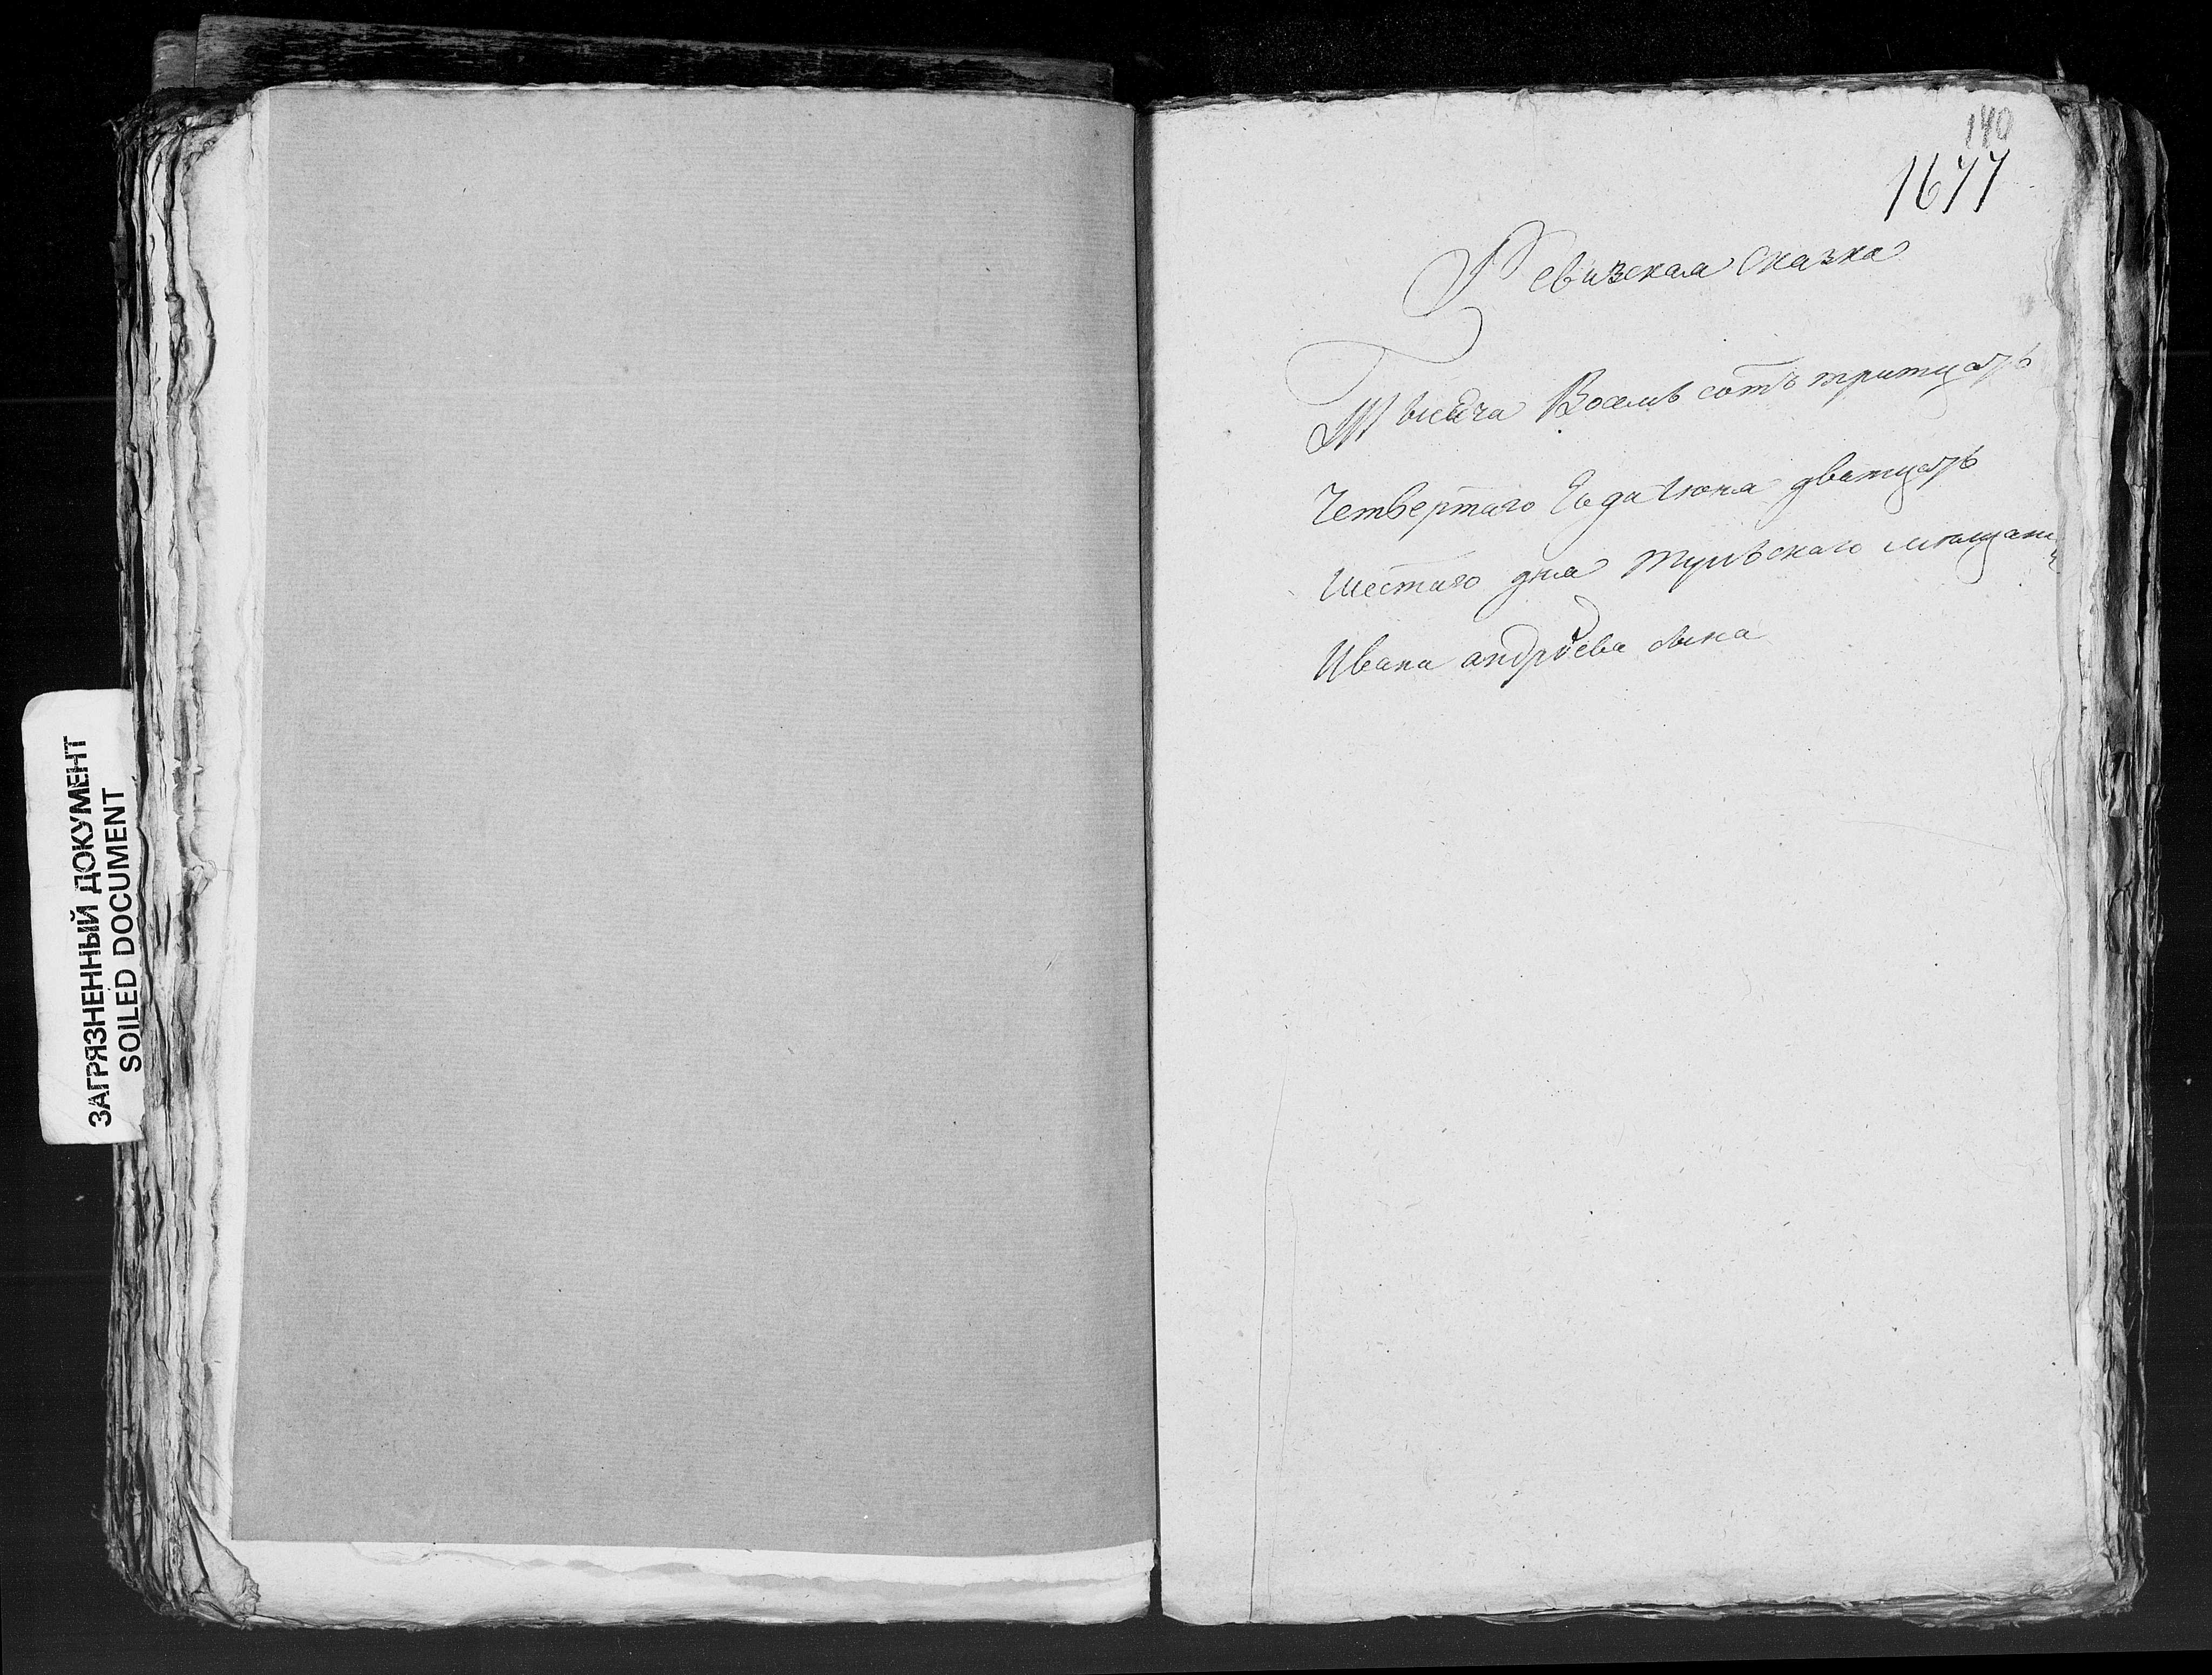 ЗАГРЯЗНЕННЫЙ ДОКУМЕНТ
SOILED DOCUMENT
140
1677
Ревизская сказка
Тысяча Восемь сотъ тритцать
Четвертаго Года Июня дватцать
Шестаго дня Тульскаго мещани
Ивана андреева сына